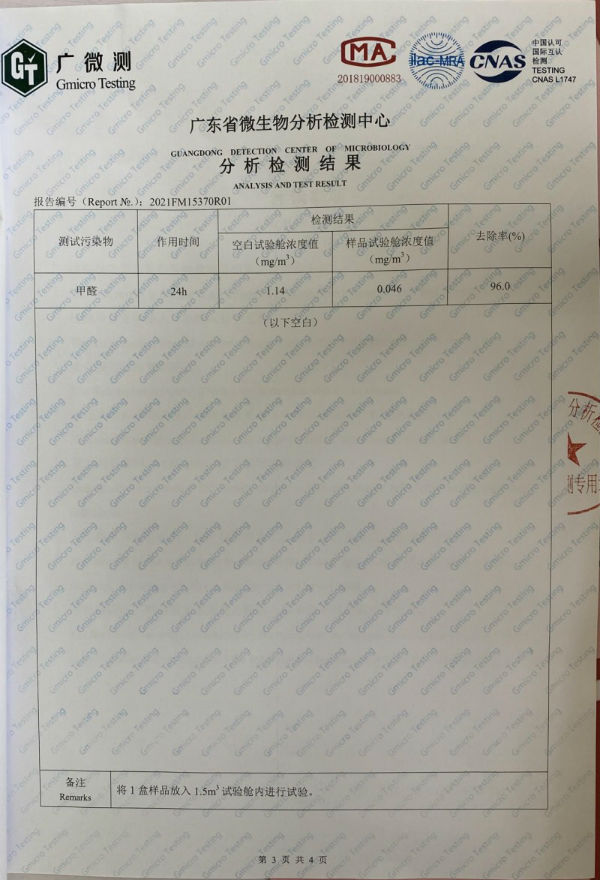 GT
广微测
Gmicro Testing
MA
201819000883
ilac-MRA
CNAS
中国认可
国际互认
检测
TESTING
CNAS L1747
广东省微生物分析检测中心
GUANGDONG DETECTION CENTER OF MICROBIOLOGY
分析检测结果
ANALYSIS AND TEST RESULT
报告编号（Report №.）：2021FM15370R01
测试污染物 作用时间 检测结果 去除率(%)
空白试验舱浓度值（mg/m³） 样品试验舱浓度值（mg/m³）
甲醛 24h 1.14 0.046 96.0
（以下空白）
分析检
测专用
备注
Remarks
将 1 盒样品放入 1.5m³ 试验舱内进行试验。
第 3 页 共 4 页